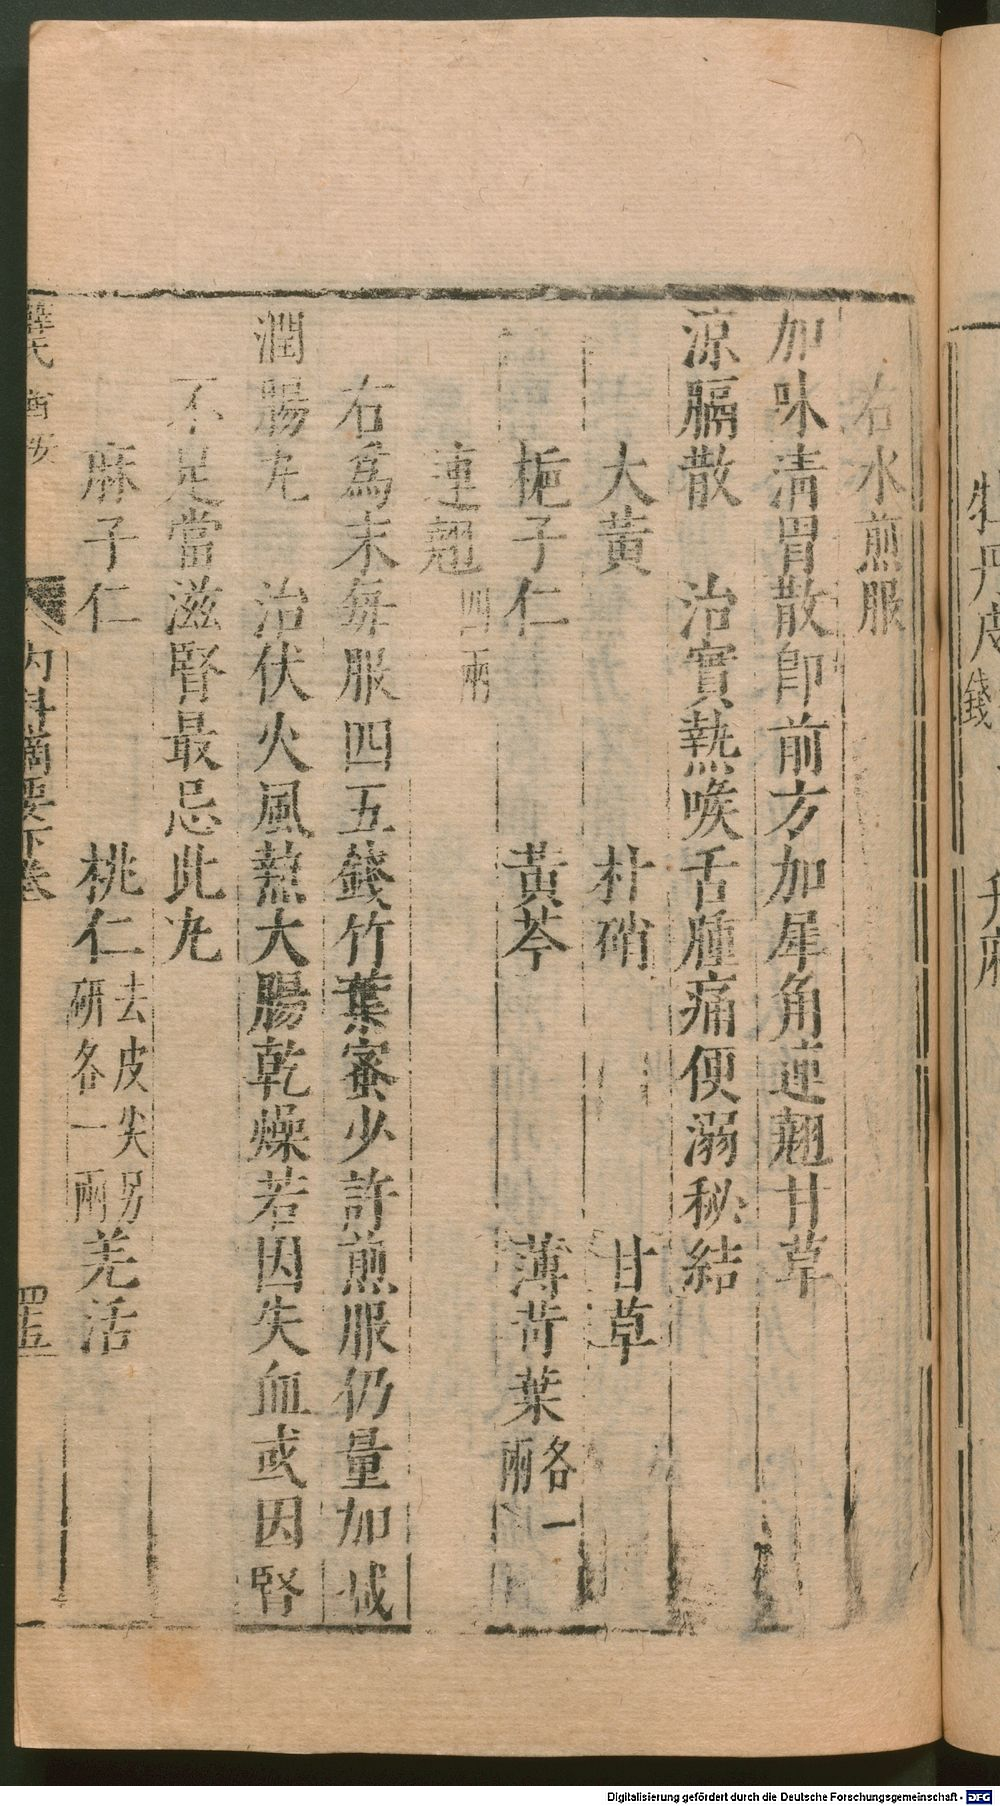 右水煎服
加味清胃散卽前方加犀角連翹甘草
涼膈散　治實熱喉舌腫痛便溺秘結
大黃　朴硝　甘草
梔子仁　黃芩　薄荷葉各一兩
連翹四兩
右爲末每服四五錢竹葉蜜少許煎服仍量加減
潤腸丸　治伏火風熱大腸乾燥若因失血或因腎
不足當滋腎最忌此丸
麻子仁　桃仁去皮尖另研各一兩羌活
薛氏醫按　內科摘要下卷　罡
牡丹皮錢　升麻
Digitalisierung gefördert durch die Deutsche Forschungsgemeinschaft - DFG